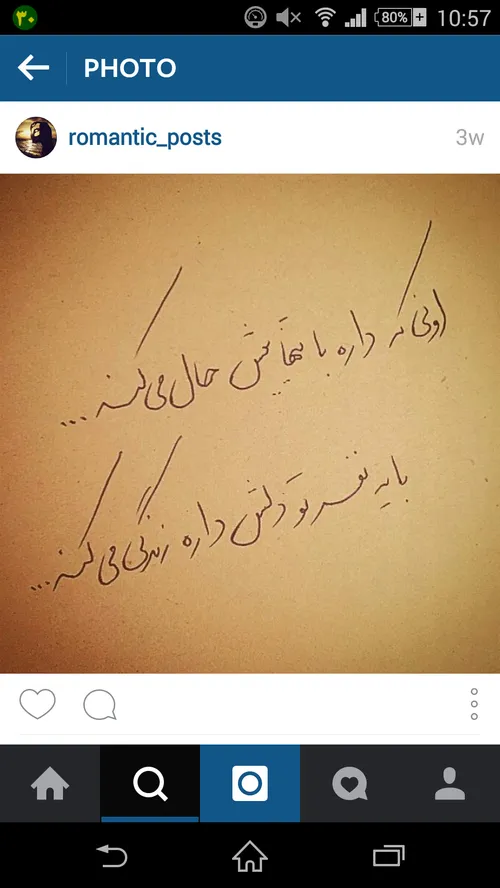 ۳۰
80%
10:57
PHOTO
romantic_posts
3w
اونی که داره با تنهاییش حال می‌کنه...
با یه نفر تو دلش داره زندگی می‌کنه...